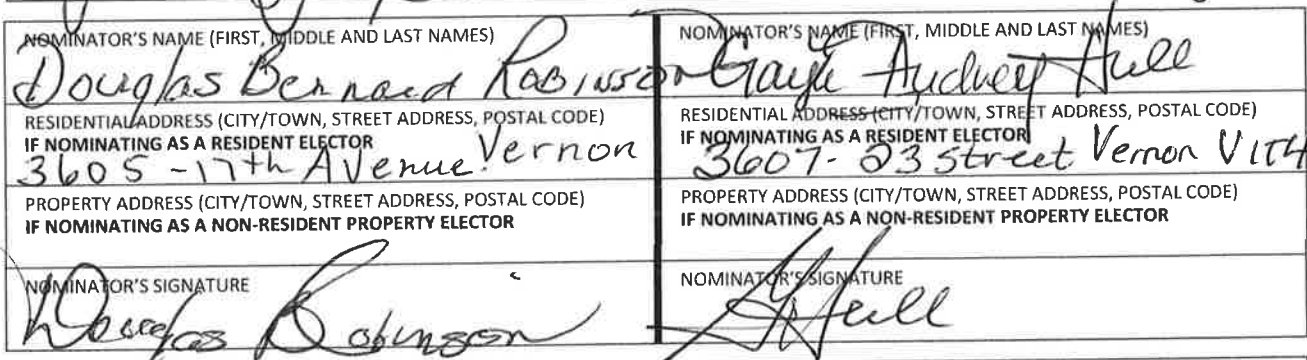 NOMINATOR'S NAME (FIRST, MIDDLE AND LAST NAMES)
Douglas Bernard Robinson
RESIDENTIAL ADDRESS (CITY/TOWN, STREET ADDRESS, POSTAL CODE)
IF NOMINATING AS A RESIDENT ELECTOR
3605 - 17th Avenue. Vernon
PROPERTY ADDRESS (CITY/TOWN, STREET ADDRESS, POSTAL CODE)
IF NOMINATING AS A NON-RESIDENT PROPERTY ELECTOR
NOMINATOR'S SIGNATURE
Douglas Robinson
NOMINATOR'S NAME (FIRST, MIDDLE AND LAST NAMES)
Audrey Hull
RESIDENTIAL ADDRESS (CITY/TOWN, STREET ADDRESS, POSTAL CODE)
IF NOMINATING AS A RESIDENT ELECTOR
3607 - 23 Street Vernon
PROPERTY ADDRESS (CITY/TOWN, STREET ADDRESS, POSTAL CODE)
IF NOMINATING AS A NON-RESIDENT PROPERTY ELECTOR
NOMINATOR'S SIGNATURE
GHull